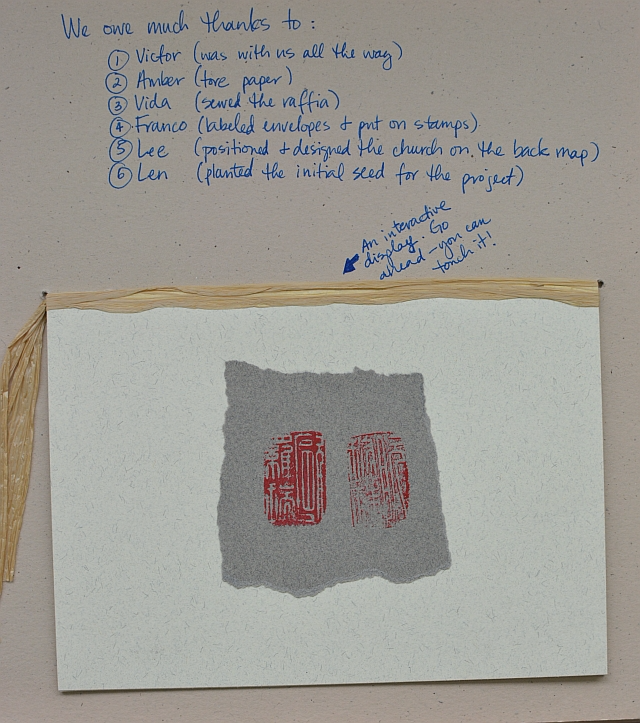 We owe much thanks to:
① Victor (was with us all the way)
② Amber (tore paper)
③ Vida (sewed the raffia)
④ Franco (labeled envelopes + put on stamps)
⑤ Lee (positioned + designed the church on the back map)
⑥ Len (planted the initial seed for the project)
An interactive
display. Go
ahead - you can
touch it!